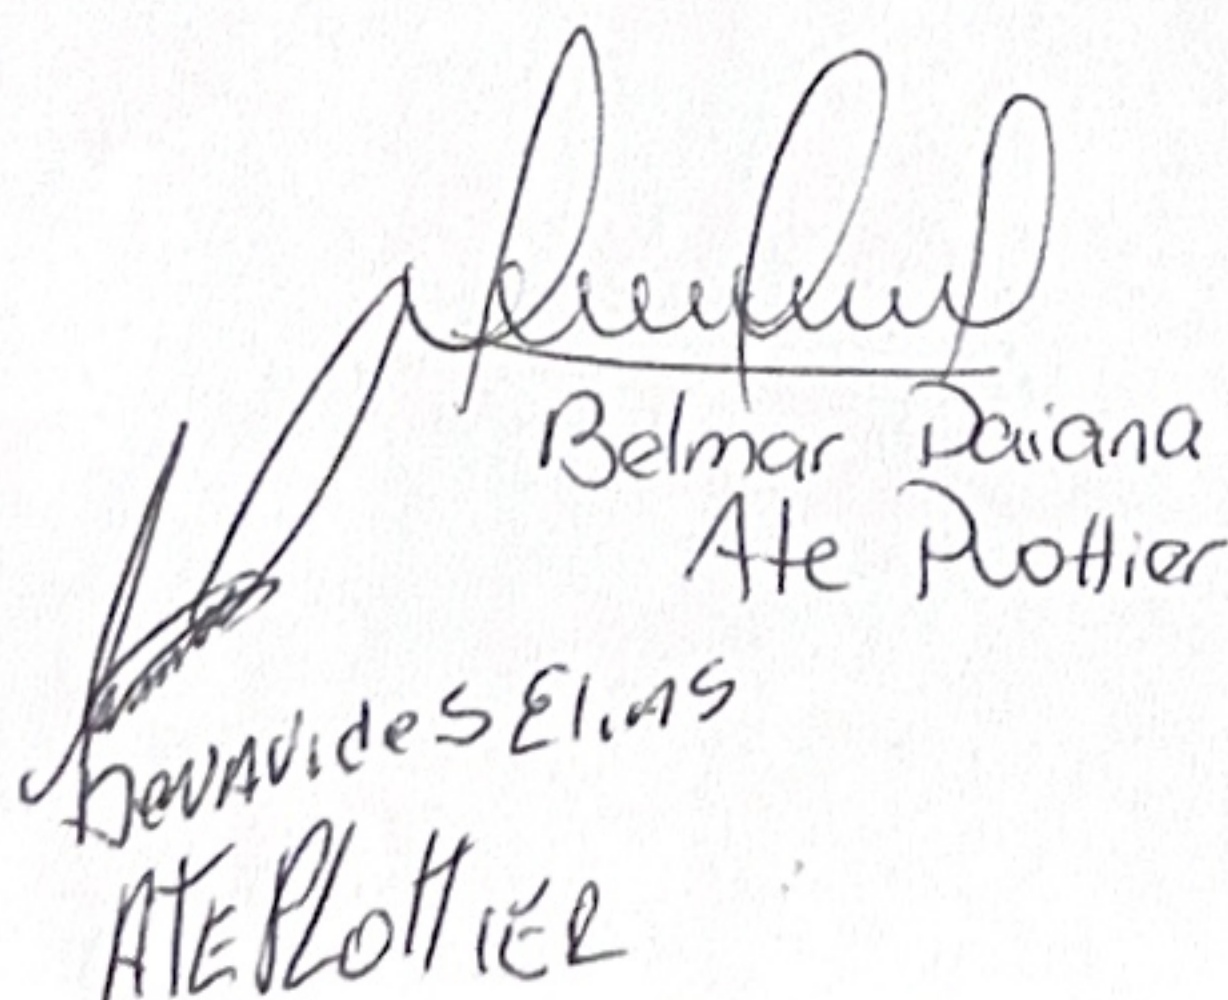 Belmar Daiana
Ate Plottier
Benavides Elias
ATE PLottiER